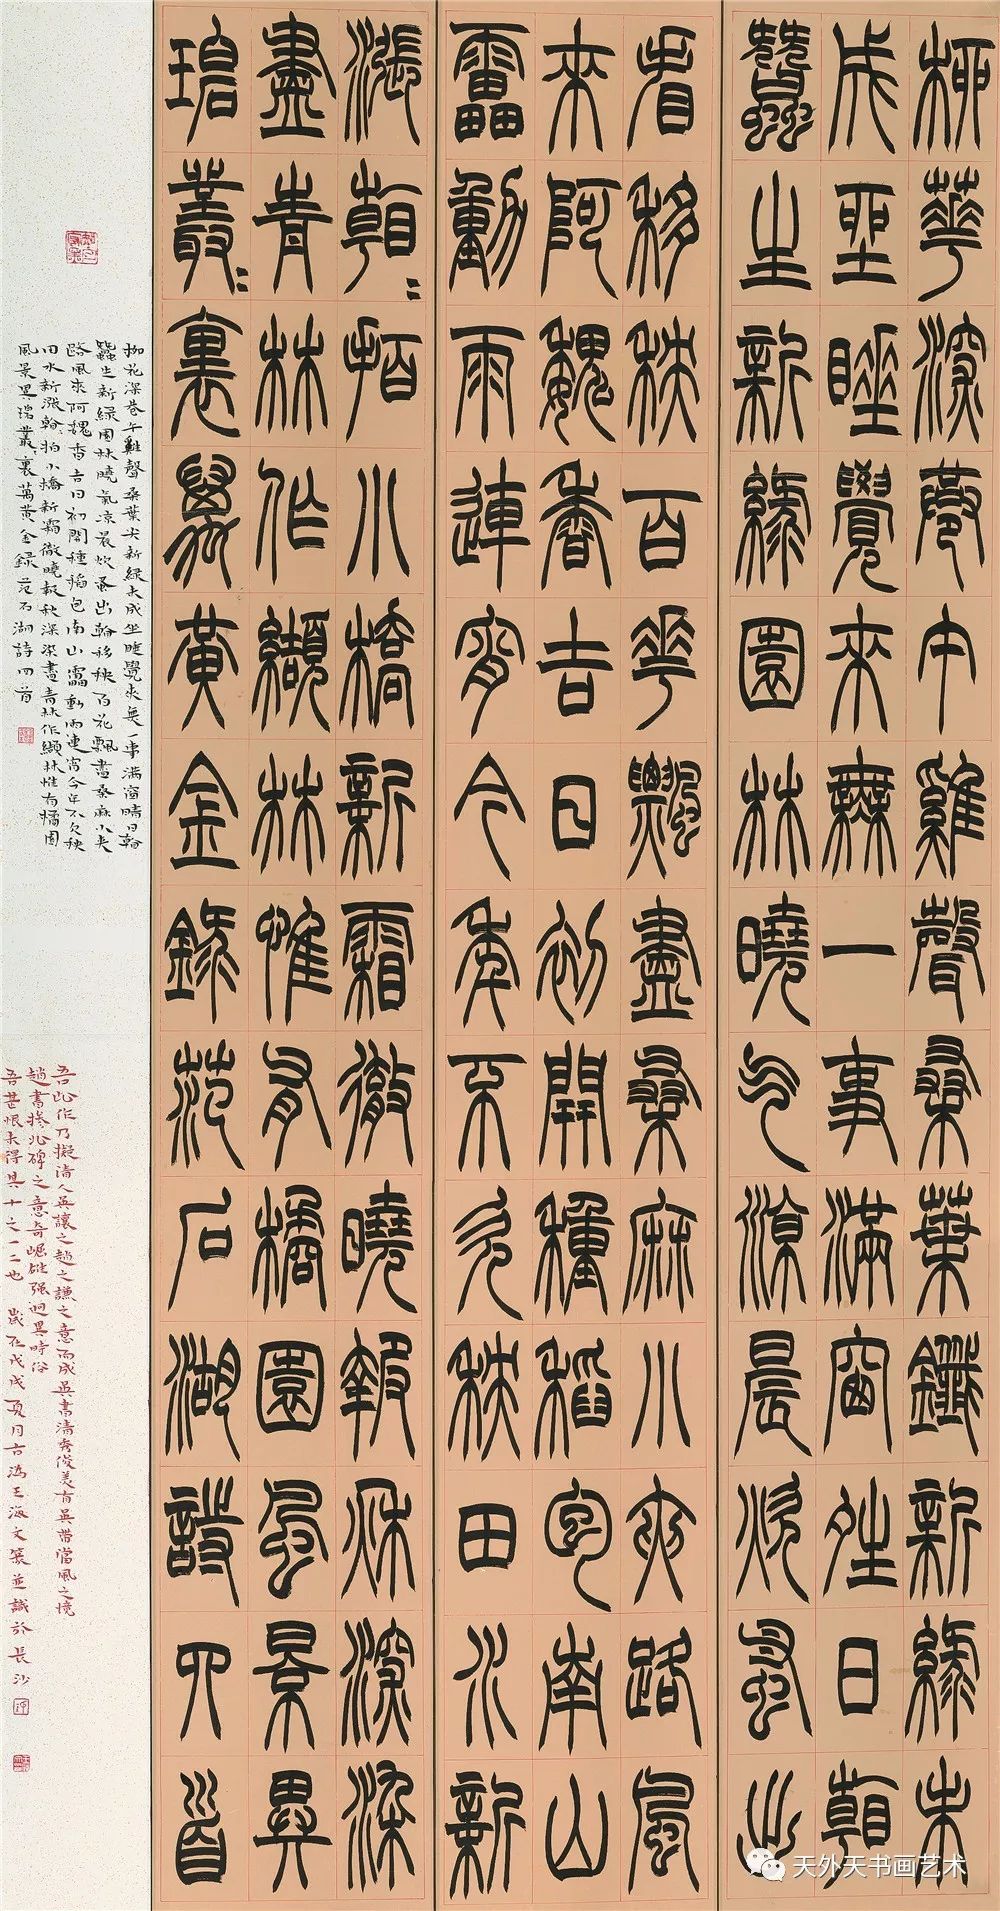 柳華深巷午雞聲桑葉鑯新綠未
成坐睡覺來無一事滿窗晴日看
蠶生新綠園林曉氣涼晨炊蚤出
看移秧百華飄盡桑麻小夾路風
來阿魏香吉日初開種稻包南山
靁動雨連宵今年不欠秧田水新
漲看=拍小橋新霜徹曉報秋深染
盡青林作纈林惟有橘園風景異
碧叢=裏萬黃金錄范石湖詩四首
柳花深巷午雞聲桑葉尖新綠未成坐睡覺來無一事滿窗晴日看
蠶生新綠園林曉氣涼晨炊蚤出看移秧百花飄盡桑麻小夾
路風來阿魏香吉日初開種稻包南山靁動雨連宵今年不欠秧
田水新漲看拍小橋新霜徹曉報秋深染盡青林作纈林惟有橘園
風景異碧叢裏萬黃金錄范石湖詩四首
吾此作乃擬清人吳讓之趙之謙之意而成吳書清秀俊美有吳帶當風之境
趙書摻北碑之意奇崛雄强迥異時俗
吾甚恨未得其十之一二也 歲在戊戌夏月古潙王海文篆並識於長沙
天外天书画艺术